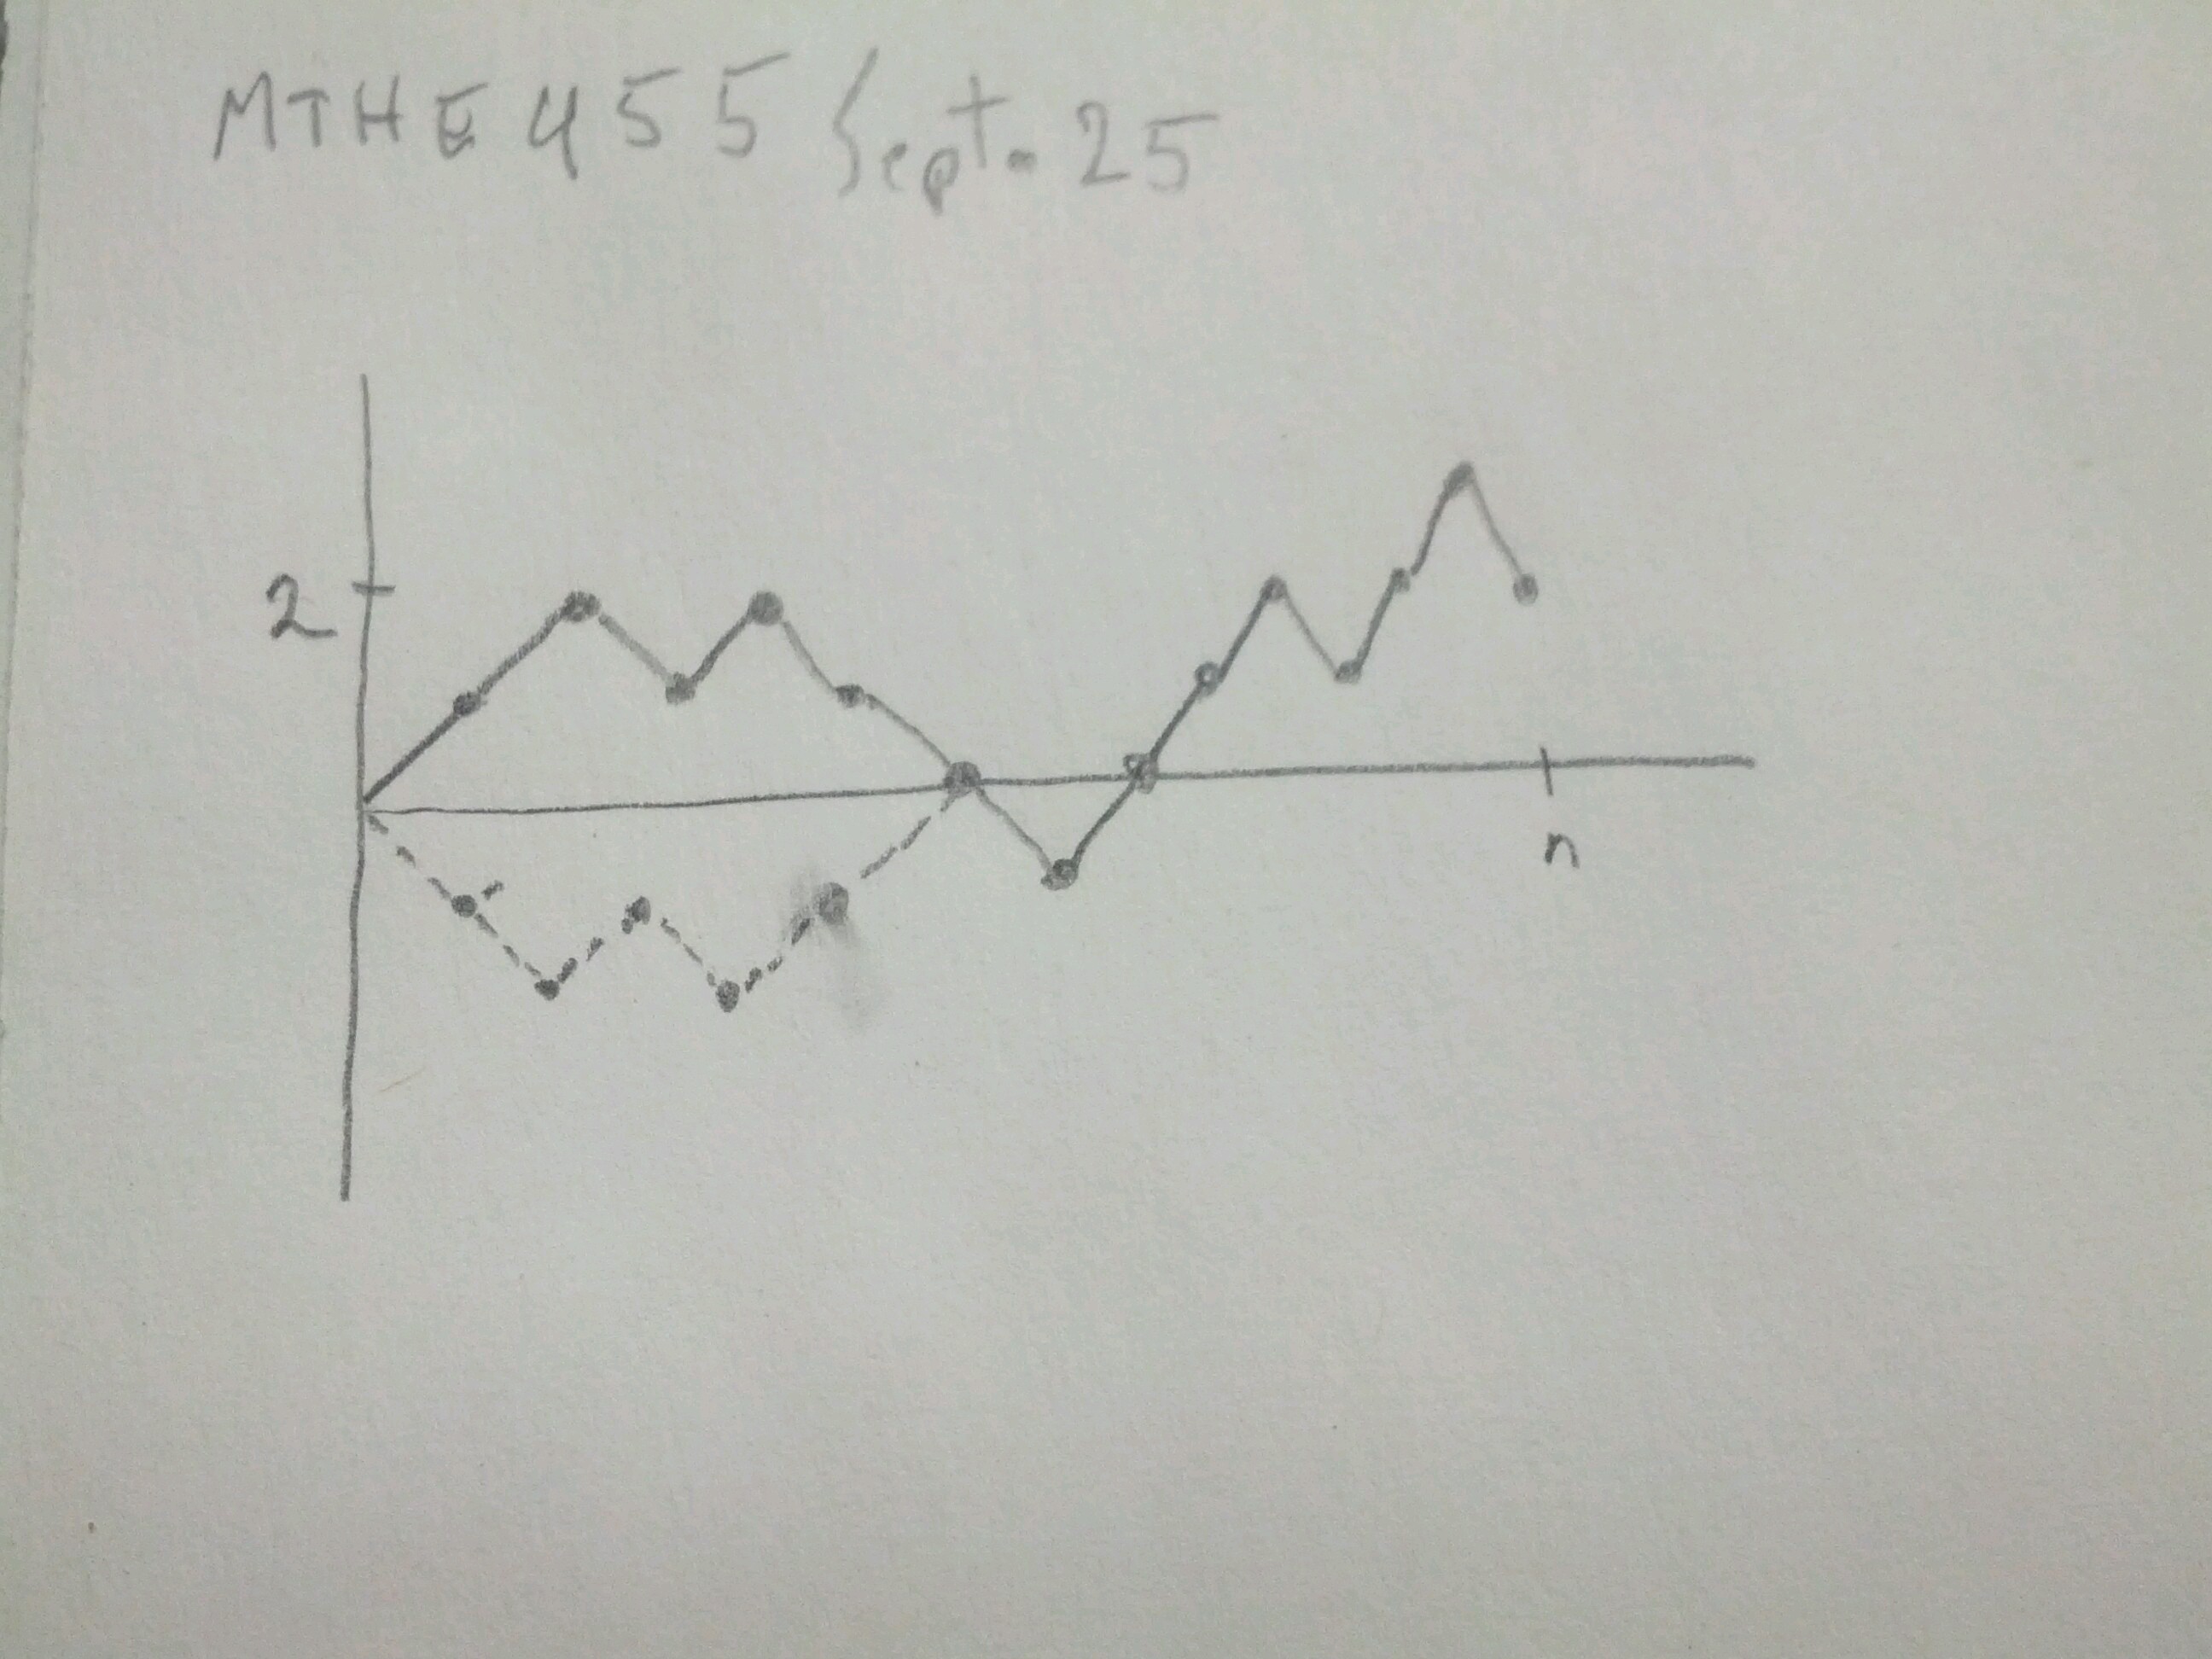 MTHE 455 Sept. 25
2
n